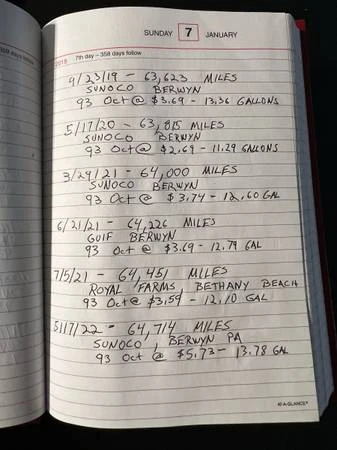 SUNDAY 7 JANUARY
2018 7th day – 358 days follow
9/23/19 – 63,623 MILES
SUNOCO BERWYN
93 Oct @ $3.69 – 13.36 GALLONS
5/17/20 – 63,815 MILES
SUNOCO BERWYN
93 Oct @ $2.69 – 11.29 GALLONS
3/24/21 – 64,000 MILES
SUNOCO BERWYN
93 Oct @ $3.74 – 12.60 GAL
6/21/21 – 64,226 MILES
GULF BERWYN
93 Oct @ $3.69 – 12.79 GAL
7/5/21 – 64,451 MILES
ROYAL FARMS, BETHANY BEACH
93 Oct @ $3.59 – 12.10 GAL
5/17/22 – 64,714 MILES
SUNOCO, BERWYN PA
93 Oct @ $5.73 – 13.78 GAL
AT-A-GLANCE®